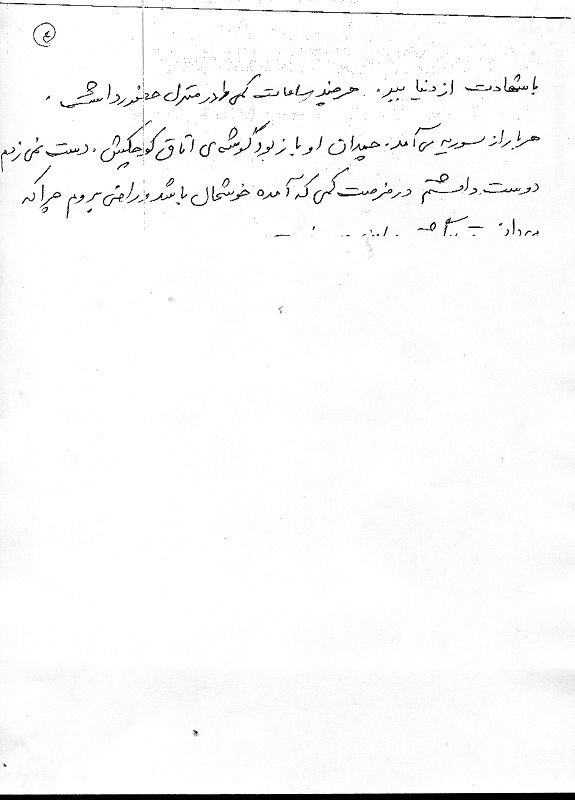 ۴
با شهادت از دنیا ببرد. هر چند ساعات کمی را در منزل حضور داشت.
هر بار از سوریه می‌آمد. چمدان او باز بود گوشه‌ی اتاق کوچکش. دست نمی‌زدم
دوست داشتم در فرصت کمی که آمده خوشحال باشد و راضی برود چرا که